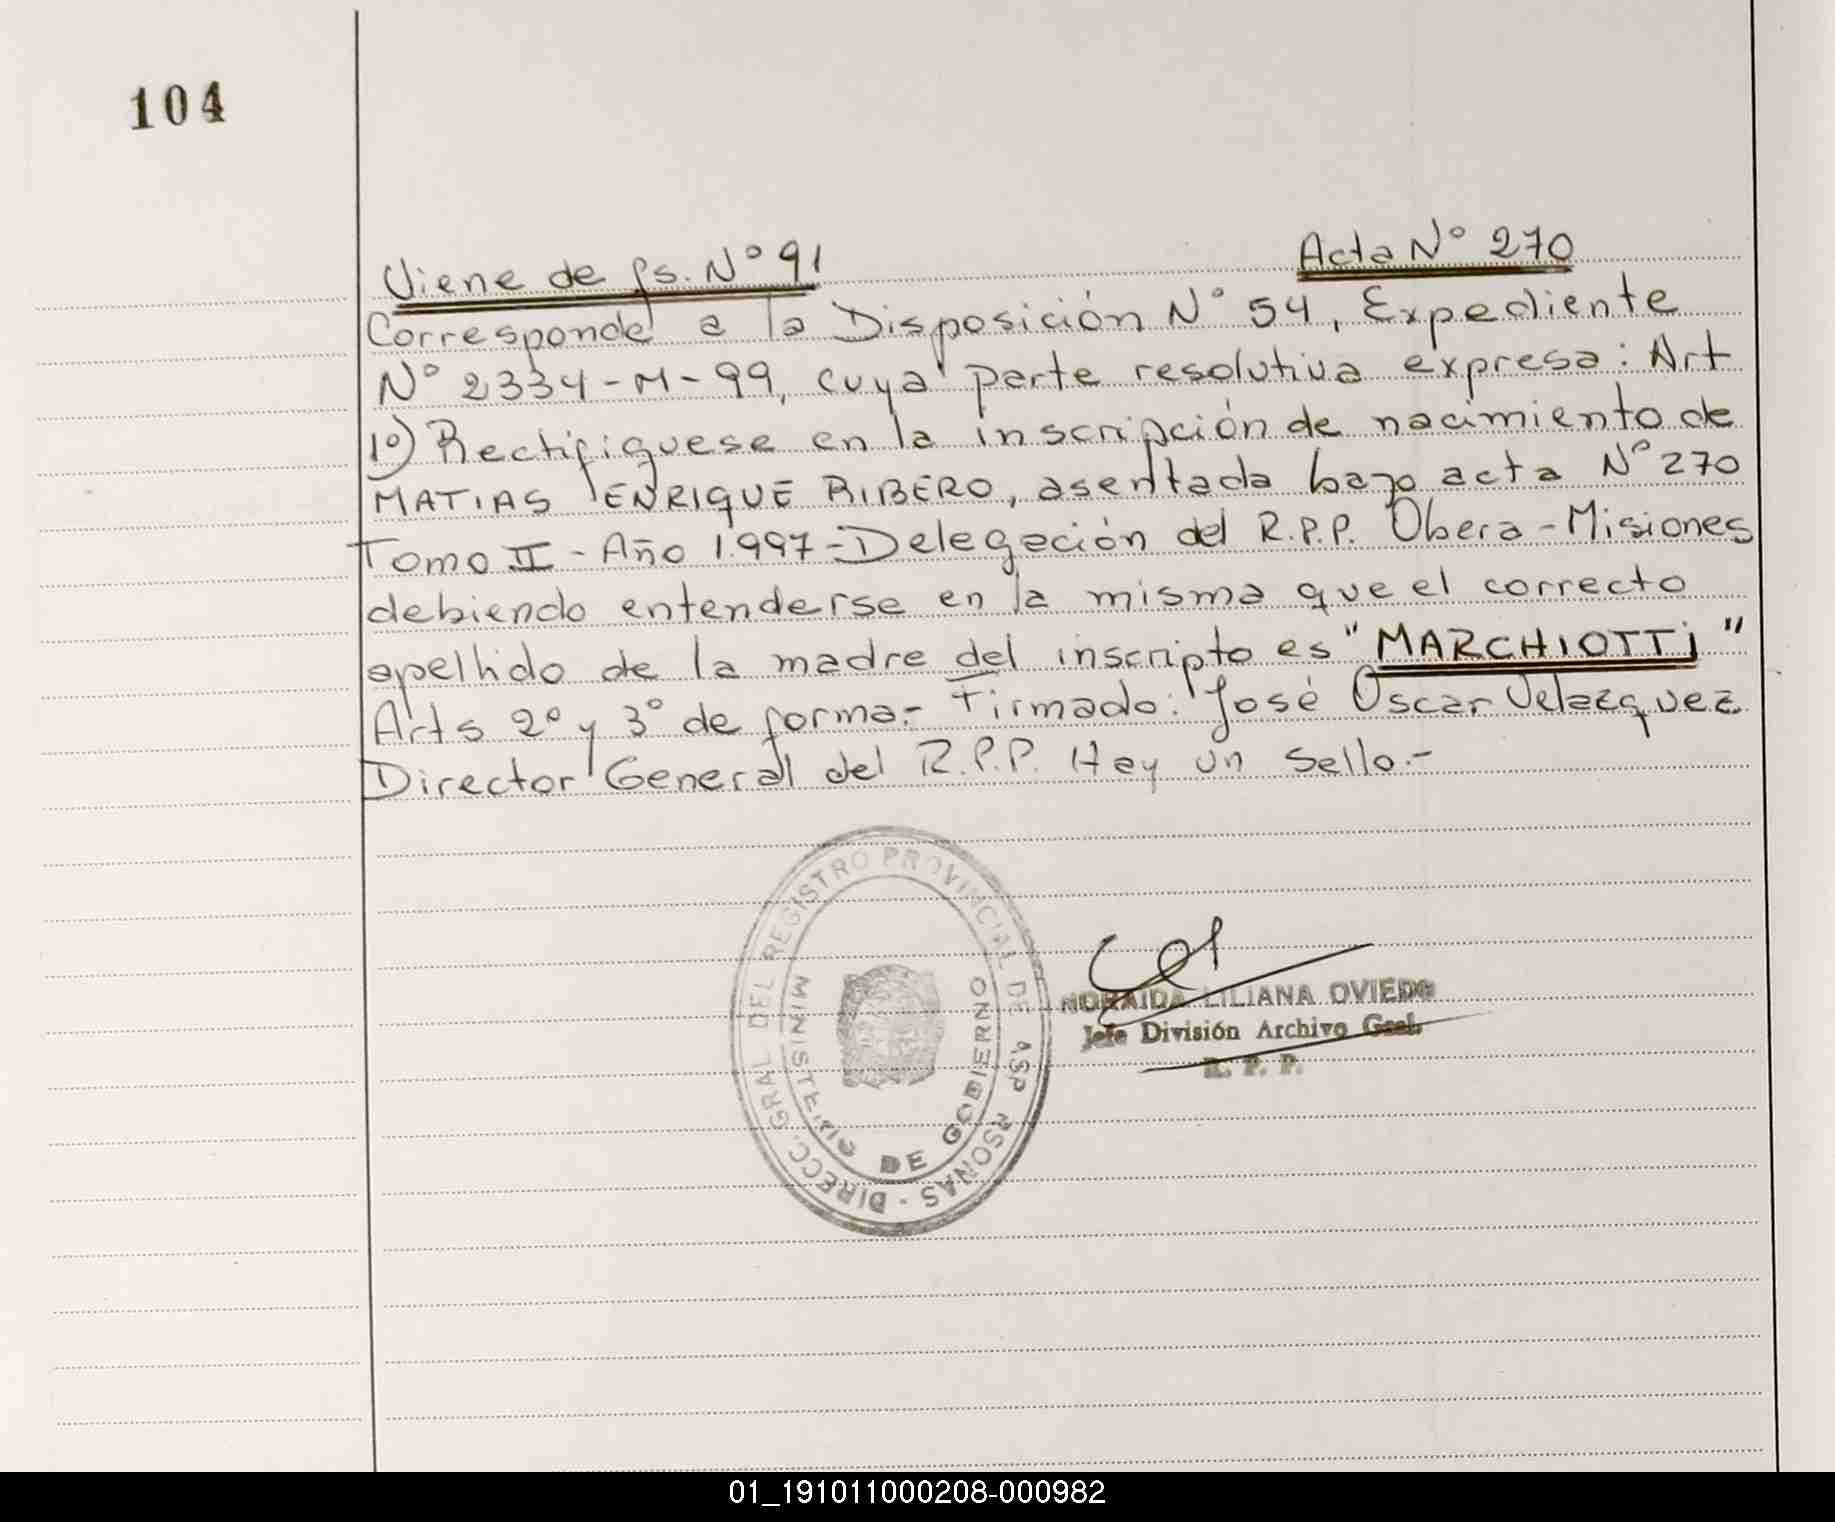 104
Viene de fs. Nº 91
Acta Nº 270
Corresponde a la Disposición Nº 54, Expediente
Nº 2334-M-99, cuya parte resolutiva expresa: Art
1º) Rectifiquese en la inscripción de nacimiento de
MATIAS ENRIQUE RIBERO, asentada bajo acta Nº 270
Tomo II - Año 1.997 - Delegación del R.P.P. Obera - Misiones
debiendo entenderse en la misma que el correcto
apellido de la madre del inscripto es "MARCHIOTTi"
Arts 2º y 3º de forma.- Firmado: José Oscar Velazquez
Director General del R.P.P. Hay un sello.-
DIRECC. GRAL DEL REGISTRO PROVINCIAL DE
RSONAS -
MINISTERIO DE GOBIERNO
NORAIDA LILIANA OVIEDO
Jefe División Archivo Gral.
R. P. P.
01_191011000208-000982